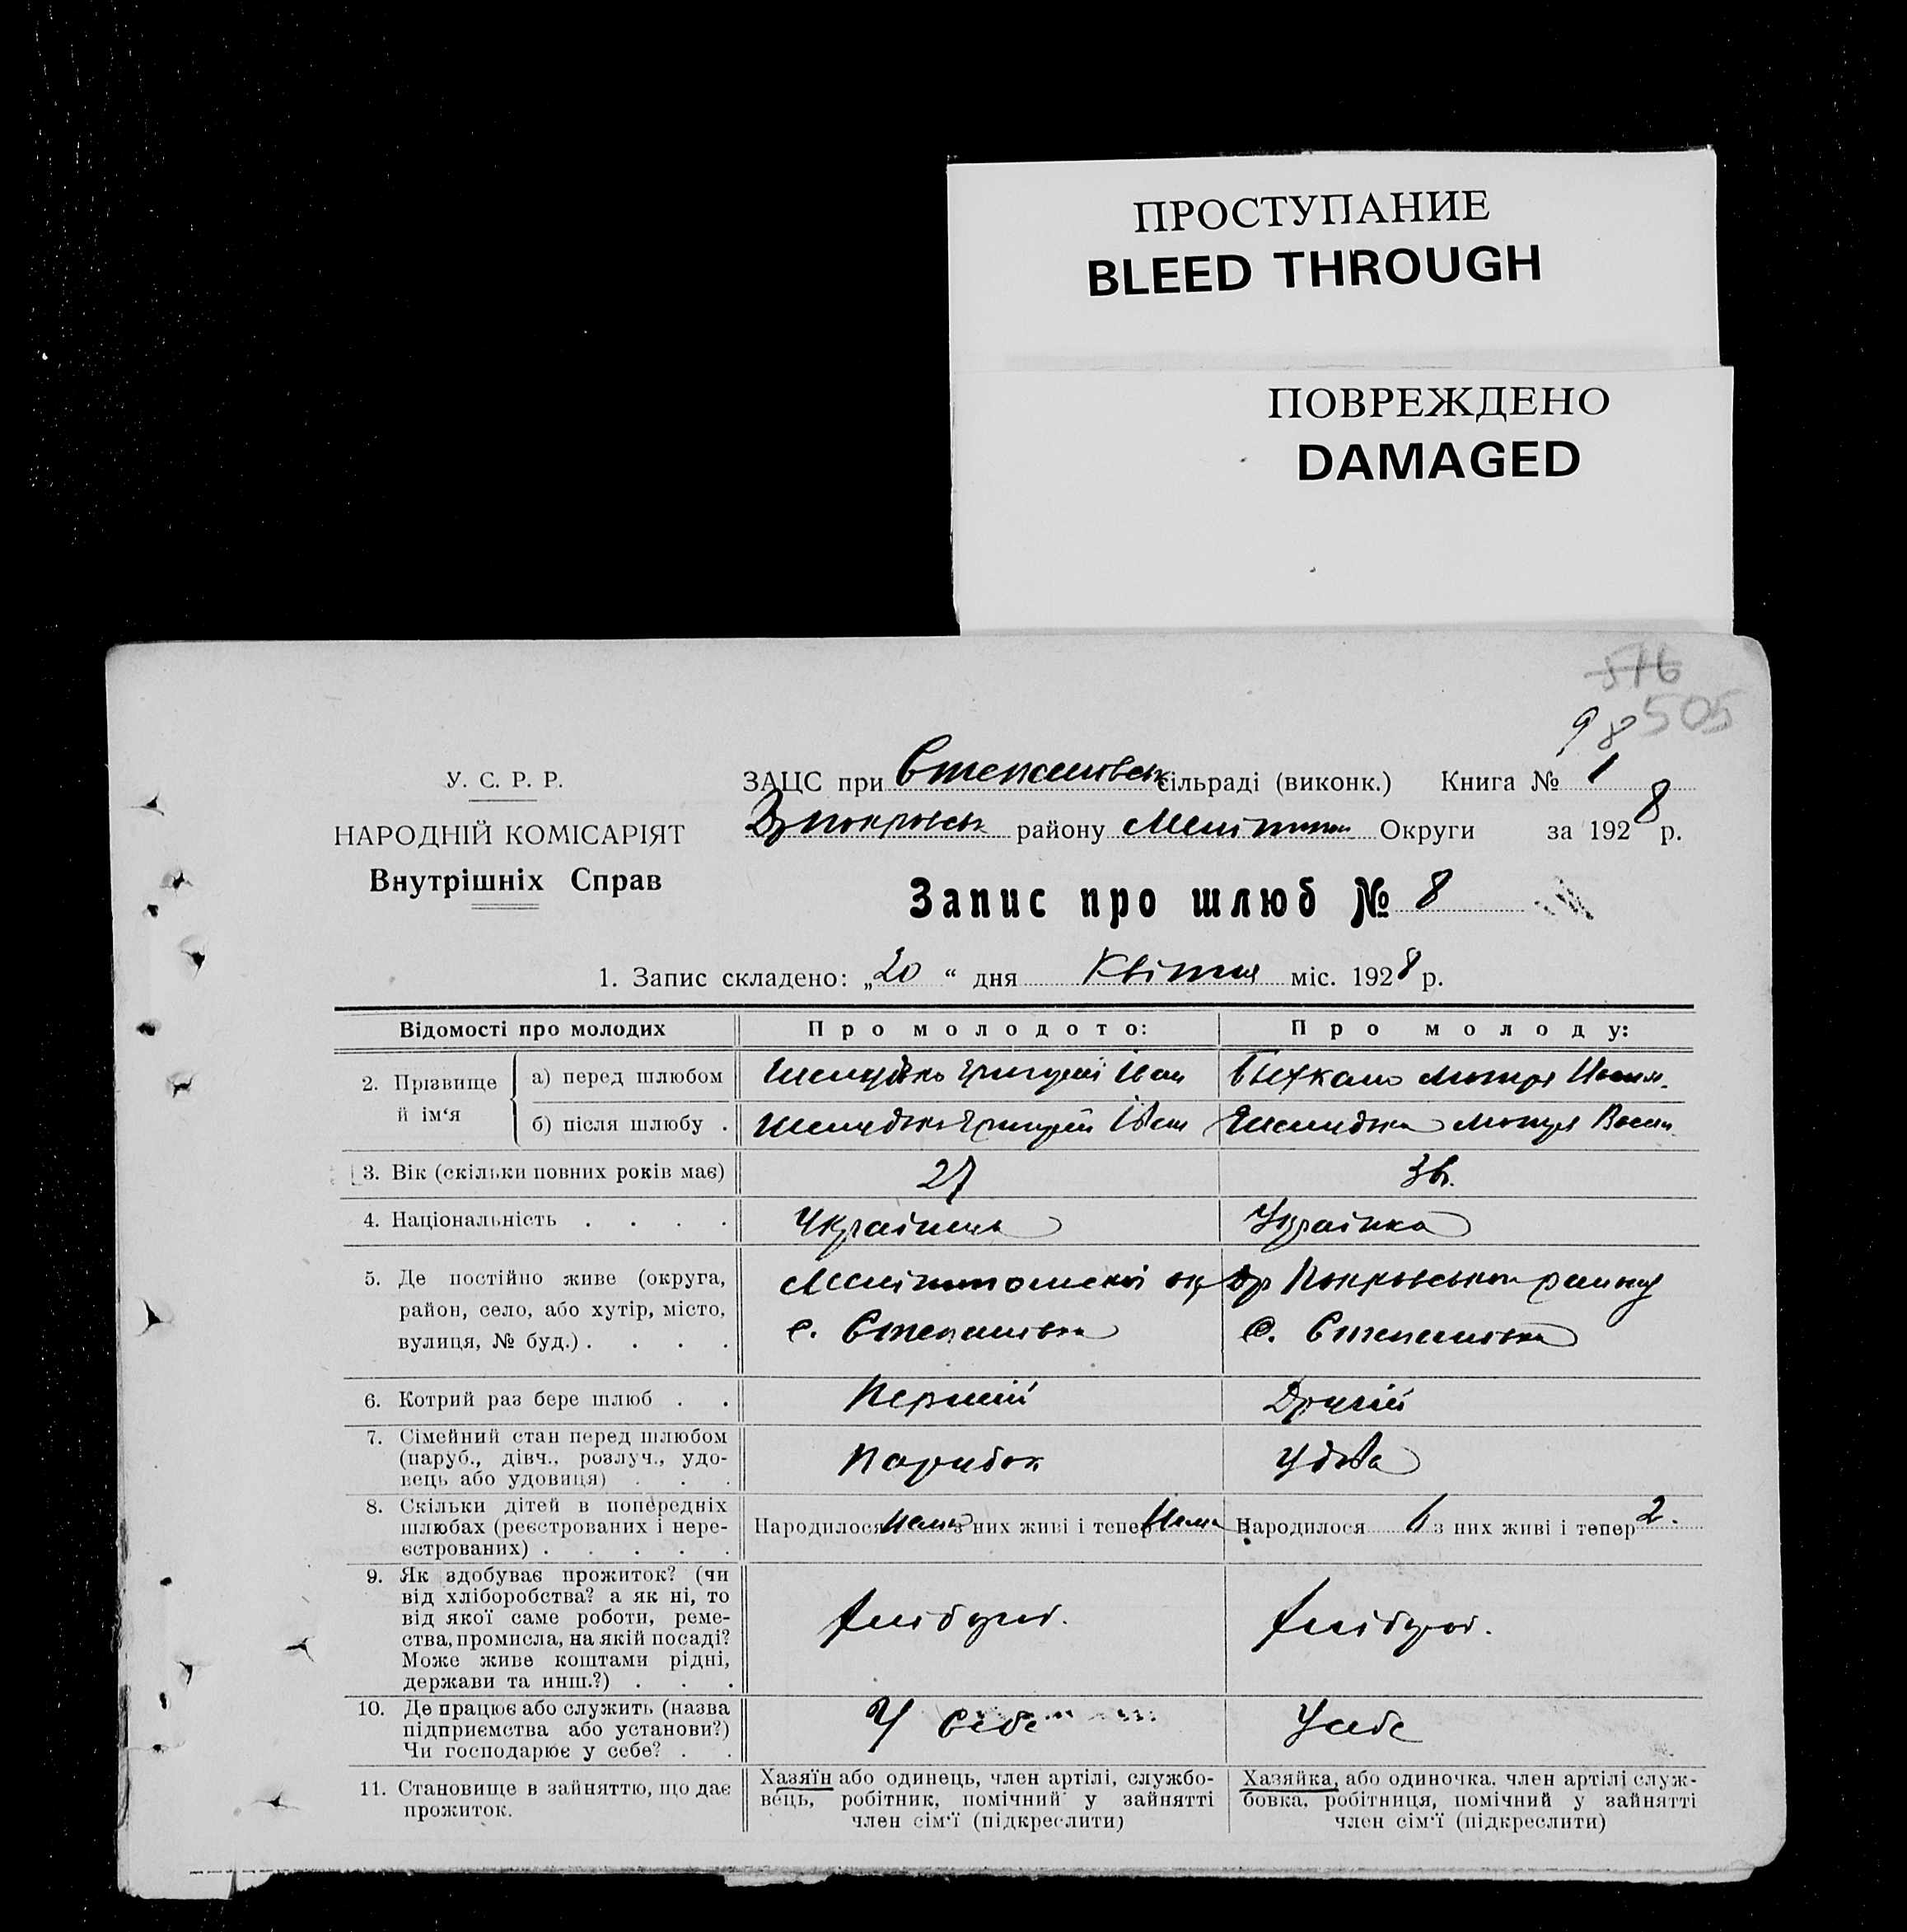 ПРОСТУПАНИЕ
BLEED THROUGH
ПОВРЕЖДЕНО
DAMAGED
516
505
98
У. С. Р. Р.
НАРОДНІЙ КОМІСАРІЯТ
Внутрішніх Справ
ЗАЦС при Степанівськ сільраді (виконк.) Книга № 1
Др Покровськ району Меліт Округи за 1928 р.
Запис про шлюб № 8
1. Запис складено: „20“ дня Квітня міс. 1928 р.
Відомості про молодих
Про молодого:
Про молоду:
2. Прізвище й ім‘я
а) перед шлюбом
Григорій Іван
Мотря
б) після шлюбу .
Григорій Іван
Мотря Васил.
3. Вік (скільки повних років має)
27
4. Національність . . . .
Українець
Українка
5. Де постійно живе (округа,
район, село, або хутір, місто,
вулиця, № буд.) . . . .
Мелітопольскої окр Др Покровського району
с. Степанівка
с. Степанівка
6. Котрий раз бере шлюб . .
Перший
Другій
7. Сімейний стан перед шлюбом
(паруб., дівч., розлуч., удо-
вець або удовиця) . . .
Парубок
Удова
8. Скільки дітей в попередніх
шлюбах (реєстрованих і нере-
єстрованих) . . . . .
Народилося нема з них живі і тепер Нема
Народилося 6 з них живі і тепер 2.
9. Як здобуває прожиток? (чи
від хліборобства? а як ні, то
від якої саме роботи, реме-
ства, промисла, на якій посаді?
Може живе коштами рідні,
держави та инш.?) . . .
Хлібороб.
Хлібороб.
10. Де працює або служить (назва
підприємства або установи?)
Чи господарює у себе? . .
У себе
У себе
11. Становище в зайняттю, що дає
прожиток.
Хазяїн або одинець, член артілі, службо-
вець, робітник, помічний у зайнятті
член сім‘ї (підкреслити)
Хазяйка, або одиночка, член артілі служ-
бовка, робітниця, помічний у зайнятті
член сім‘ї (підкреслити)